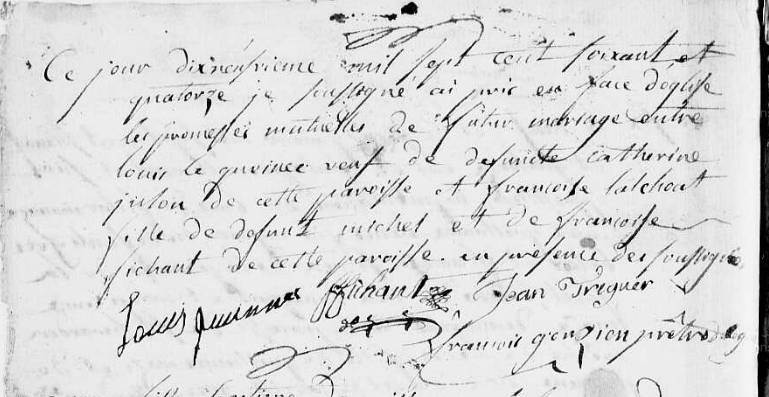 Ce jour dixneufvieme mil sept cent soixant et
quatorze je soussigné ai pris en face d'eglise
les promesses mutuelles de futur mariage entre
louis le quoinec veuf de defuncte catherine
de cette paroisse et francoise lalchoat
fille de defunt michel et de francoise
fichant de cette paroisse. en presence des soussignés
Louis ffichant Jean Treguer
francois prêtre